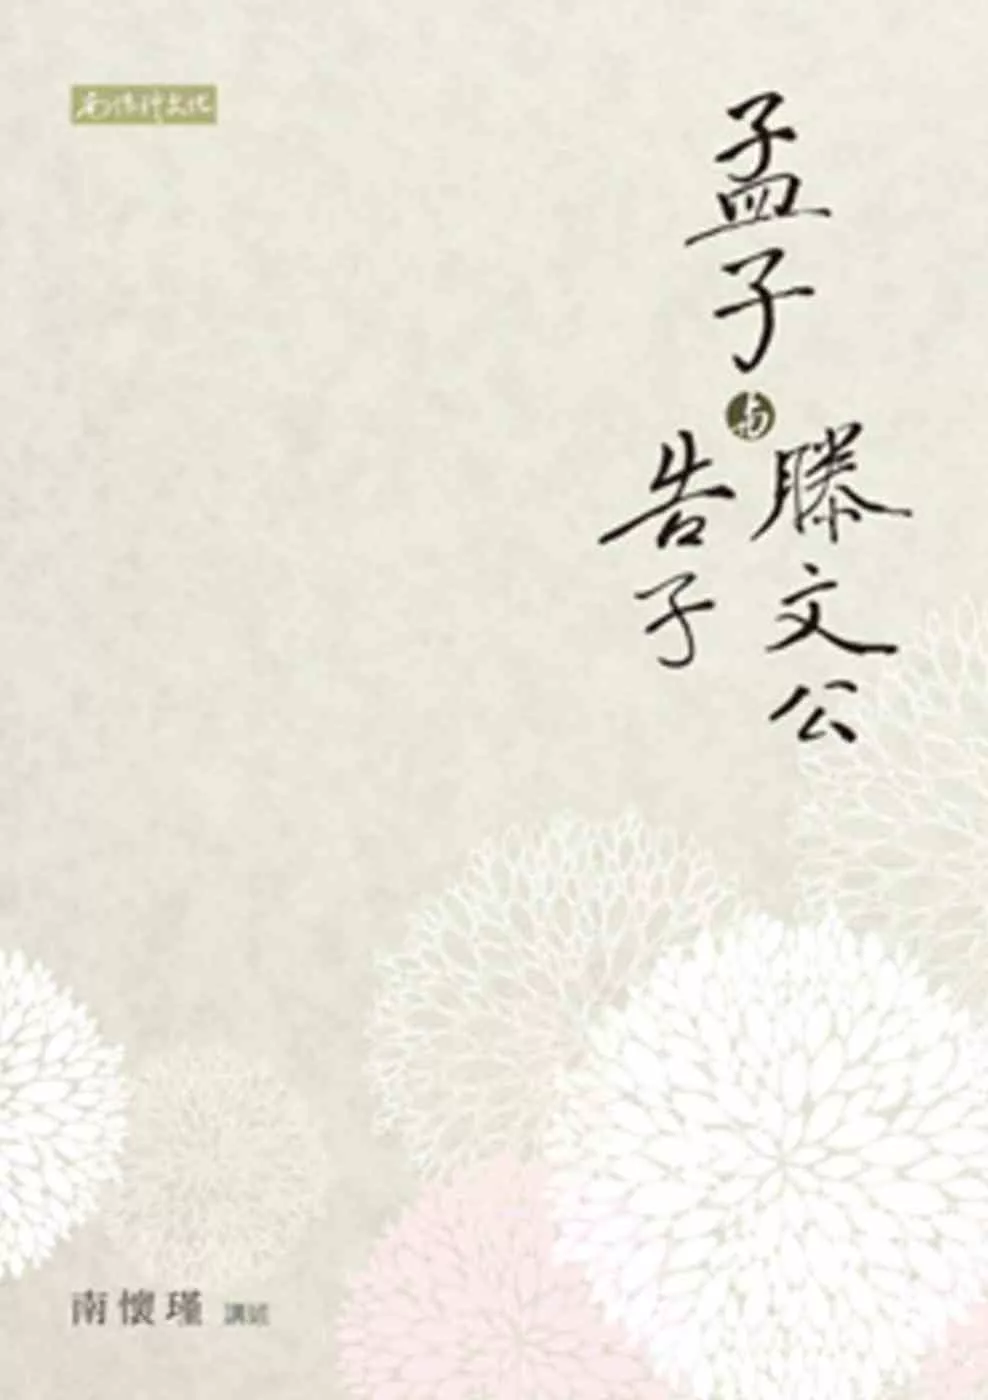 南懷瑾文化
孟子
與
滕文公
告子
南懷瑾 講述